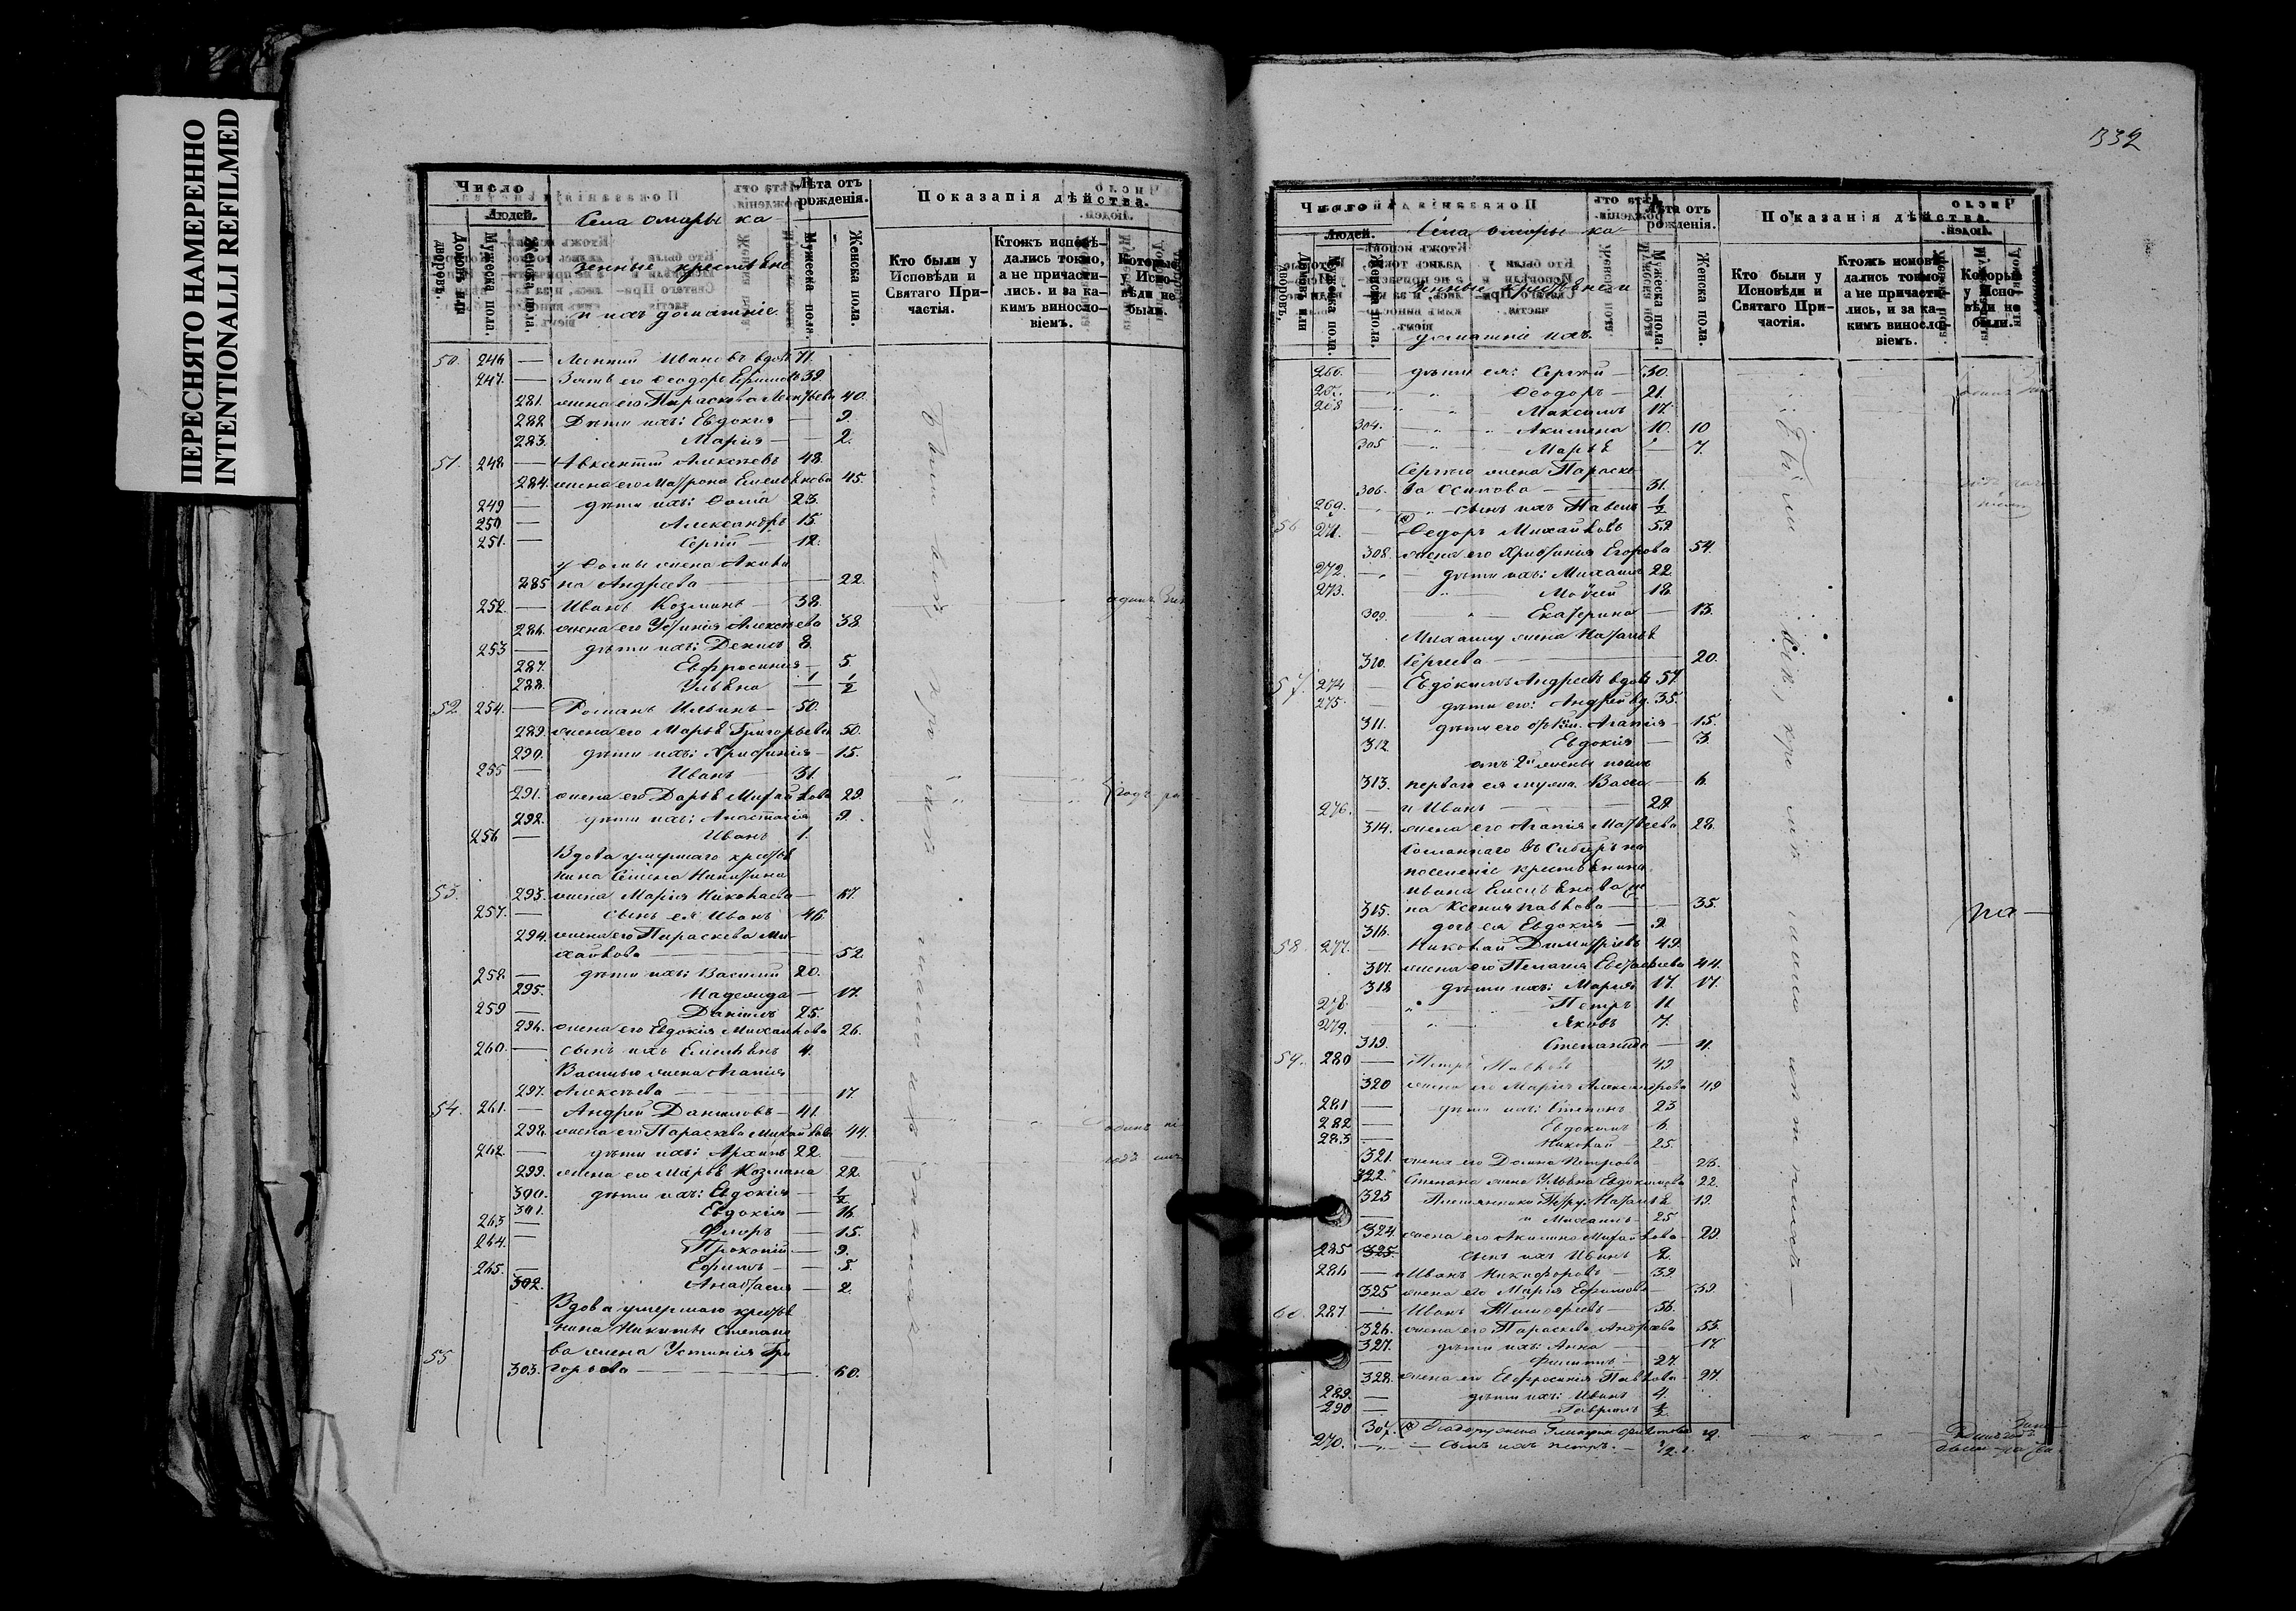 ПЕРЕСНЯТО НАМЕРЕННО
INTENTIONALLI REFILMED
Число
Людей.
Домовъ или дворовъ.
Мужеска пола.
Женска пола.
Села Омары ка-
зенные крестьяне
и ихъ домашніе
Лѣта отъ рожденія.
Мужеска пола.
Женска пола.
Показанія дѣйства.
Кто были у Исповѣди и Святаго Причастія.
Ктожъ исповѣдались токмо, а не причастились. и за какимъ винословіемъ.
Которые у Исповѣди не были.
50. 246 — Иванъ вдов. 71.
247. — Зять его Ѳеодоръ 39.
281. жена его Параскева 40.
282 Дѣти ихъ: Евдокія — 9.
283. Марія — 2.
51. 248 — Авксентій Алексѣевъ 48.
284. жена его Матрона Емельянова 45.
249 — дѣти ихъ: Ѳома 23.
250 — Александръ 15.
251. — Сергій — 12.
у Ѳомы жена Акили
285 на Андреева — 22.
252. — Иванъ Козминъ — 38.
286. жена его Устинія Алексѣева 38
253 — дѣти ихъ: 8.
287. Евфросинія — 5.
288. Ульяна — 1/2
52 254. — Романъ Ильинъ — 50.
289. жена его Марья Григорьева 50.
290. дѣти ихъ: Христинія — 15.
255 — Иванъ — 31.
291. жена его Дарья Михайлова 29.
292. дѣти ихъ: Анастасія 9.
256 — Иванъ 1.
Вдова умершаго кресть
нина Семена Никитина
53. 293. жена Марія Николаева — 67.
257. — сынъ ея Иванъ 46
294. жена его Параскева Ми-
хайлова — 52
258 — дѣти ихъ: Василій 20.
295. Надежда — 17.
259 — Даніилъ 25.
296. жена его Евдокія Михайлова 26.
260. — сынъ ихъ Емельянъ 4.
Василью жена Агапія
297. Алексѣева — 17.
54. 261. — Андрей Даниловъ — 41.
298. жена его Параскева Михайлова 44.
262. — дѣти ихъ: Архипъ 22.
299. жена его Марья Козмина 22.
300. дѣти ихъ: Евдокія — 1/2
301. Евдокія — 16.
263 — Флоръ — 15.
264. — Прокопій — 9.
265. — Ефимъ — 5.
302. Анастасія — 2.
Вдова умершаго кресть
нина Никиты Степано
55 ва жена Устинія Гри
303. горьева — 60.
332
Число
Людей.
Домовъ или дворовъ.
Мужеска пола.
Женска пола.
Села Омары ка-
зенные крестьяне и
домашніе ихъ.
Лѣта отъ рожденія.
Мужеска пола.
Женска пола.
Показанія дѣйства.
Кто были у Исповѣди и Святаго Причастія.
Ктожъ исповѣдались токмо, а не причастились, и за какимъ винословіемъ.
Которые у Исповѣди не были.
266. дѣти ея: Сергѣй — 30.
267. Ѳеодоръ — 21.
268 Максимъ 17.
304. Акилина 10. 10
305 Марья — 7.
Сергѣю жена Параске
306. ва Осипова — 31.
269. сынъ ихъ Павелъ 1/2
56 271. — Ѳедоръ Михайловъ 52
308. жена его Христинія Егорова 54.
272. дѣти ихъ: Михаилъ 22
273. 18.
309. Екатерина — 13.
Михаилу жена Наталья
310. Сергѣева — 20.
57. 274 — Евдокимъ Андреевъ вдовъ 57.
275. — дѣти его: Андрей вд. 35.
311. дѣти его отъ 1й ж. Агапія — 15.
312. Евдокія — 3.
отъ 2й жены
313. перваго ея мужа. Васса — 6.
276. и Иванъ — 28
314. жена его Агапія Матвеева 28.
Сосланнаго въ Сибирь на
поселеніе крестьянина
Ивана Емельянова же
315. на Ксенія Павлова — 35.
316. дочь ея Евдокія — 9
58. 277. — Николай Димитріевъ 49.
317. жена его Пелагія Евстафіева 44.
318 дѣти ихъ: Марія 17. 17.
278. Петръ 11
279. Яковъ 7.
319. Степанида — 4.
59. 280 — Петръ Павловъ 49
320 жена его Марія Александрова 49
281 — дѣти ихъ: Степанъ 23
282 — Евдокимъ — 6.
283 — Николай — 25.
321. жена его Домна Петрова 23.
322. Степана жена Ульяна Евдокимова 22.
323 Петру: Наталья 19.
и Михаилъ 25
324. жена его Акилина Михайлова — 29.
285 325. сынъ ихъ Иванъ 2.
286 — Иванъ Никифоровъ — 39.
325 жена его Марія Ефимова — 39
60. 287 — Иванъ Тимофеевъ — 56.
326. жена его Параскева Андреева 55.
327. дѣти ихъ: Анна 17.
— Филиппъ — 27.
328. жена его Евфросинія Павлова — 27.
289. — дѣти ихъ: Иванъ 4.
290 — Гавріилъ 1/2
307. Ѳеодору жена Гликерія 19.
270. — сынъ ихъ Петръ. — 1/2.